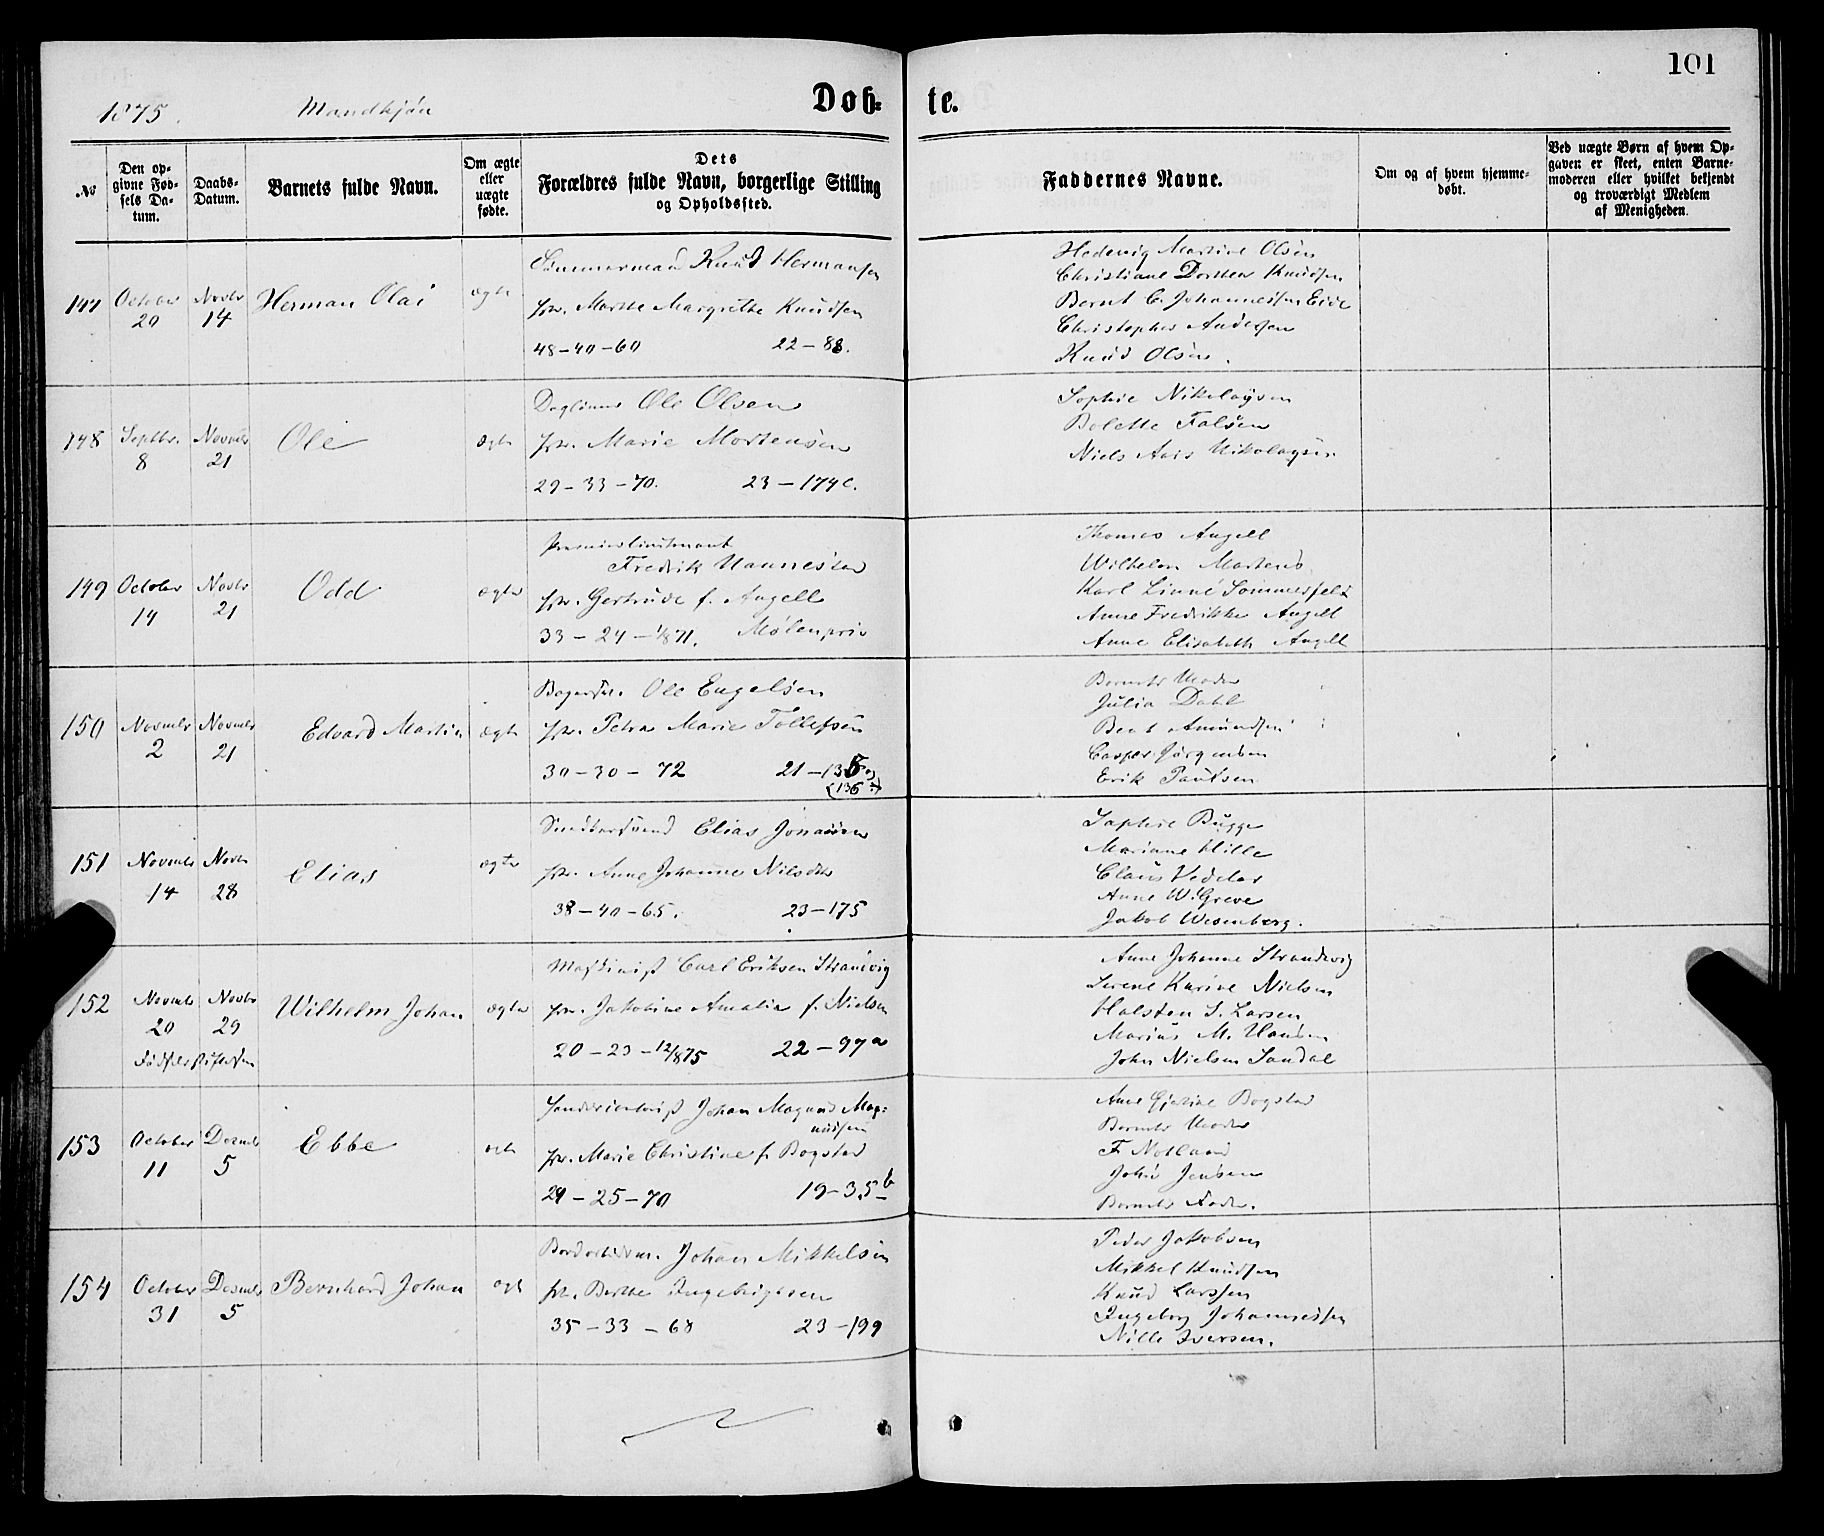 101
1875. Mandkjön
Døb= te.
№
Den op-
givne Fød-
sels Da-
tum.
Daabs-
Datum.
Barnets fulde Navn.
Om ægte
eller
uægte
fødte.
Dets
Forældres fulde Navn, borgerlige Stilling
og Opholdssted.
Faddernes Navne.
Om og af hvem hjemme-
døbt.
Ved uægte Børn af hvem Op-
gaven er skeet, enten Barne-
moderen eller hvilket bekjendt
og troværdigt Medlem
af Menigheden.
147 October 20 Novbr 14 Herman Olai ægte
Tømmermand Knud Hermansen
Marthe Margrethe Knudsen
48-40-60 22-88.
Hedevig Martine Olsen
Christiane Dorthea Knudsen
Bernt C. Johannessen Eide
Christopher Andersen
Knud Olsen.
148 Septbr. 8 Novmbr 21 Ole ægte
Ole Olsen
Marie Mortensen
29-33-70. 23-174c.
Sophie Nikolaysen
Bolette Falsen
Niels Nikolaysen
149 October 14 Novbr 21 Odd ægte
Premierlieutenant
Fredrik Nannestad
Gertrude f. Angell
33-24-1/871. Møhlenpriis
Thomas Angell
Wilhelm Martens
Karl Linné Sommerfelt
Anne Fredrikke Angell
Anne Elisabeth Angell
150 Novmbr 2 Novmbr 21 Edvard Martin ægte
Ole Engelsen
Petra Marie Tollefsen
30-30-72 21-135
(136
Barnets Moder
Julia Dahl
Amundsen
Casper Jørgensen
Erik Paulsen
151 Novmbr 14 Novbr 28 Elias ægte
Snedkersvend Elias Jonassen
Anne Johanne Nilsdtr
38-40-65. 23-175
Sophie Bugge
Mariane Wille
Claus Vedeler
Anne W. Greve
Jakob Wesenberg.
152 Novmbr 20 Novbr 29 Wilhelm Johan ægte
Fødselsstiftelsen
Maskinist Carl Eriksen Strandvig
Jakobine Amalia f. Nielsen
20-23-12/875 22-97a
Anne Johanne Strandvig
Serene Karine Nielsen
Halsten S. Larsen
Marius M. Hansen
John Nielsen Sandal
153 October 11 Decmbr 5 Ebbe ægte
Johan Magnus Mag=
nussen
Marie Christine f. Bogstad
29-25-70 19-35b
Ane Gjertine Bogstad
Barnets Moder
F. Notland
John Jensen
Barnets Fader.
154 October 31 Decmbr 5 Bernhard Johan ægte
Johan Mikkelsen
Berthe Ingebrigtsen
35-33-68 23-199
Peder Jakobsen
Mikkel Knudsen
Knud Larssen
Ingeborg Johannessen
Nille Iversen.